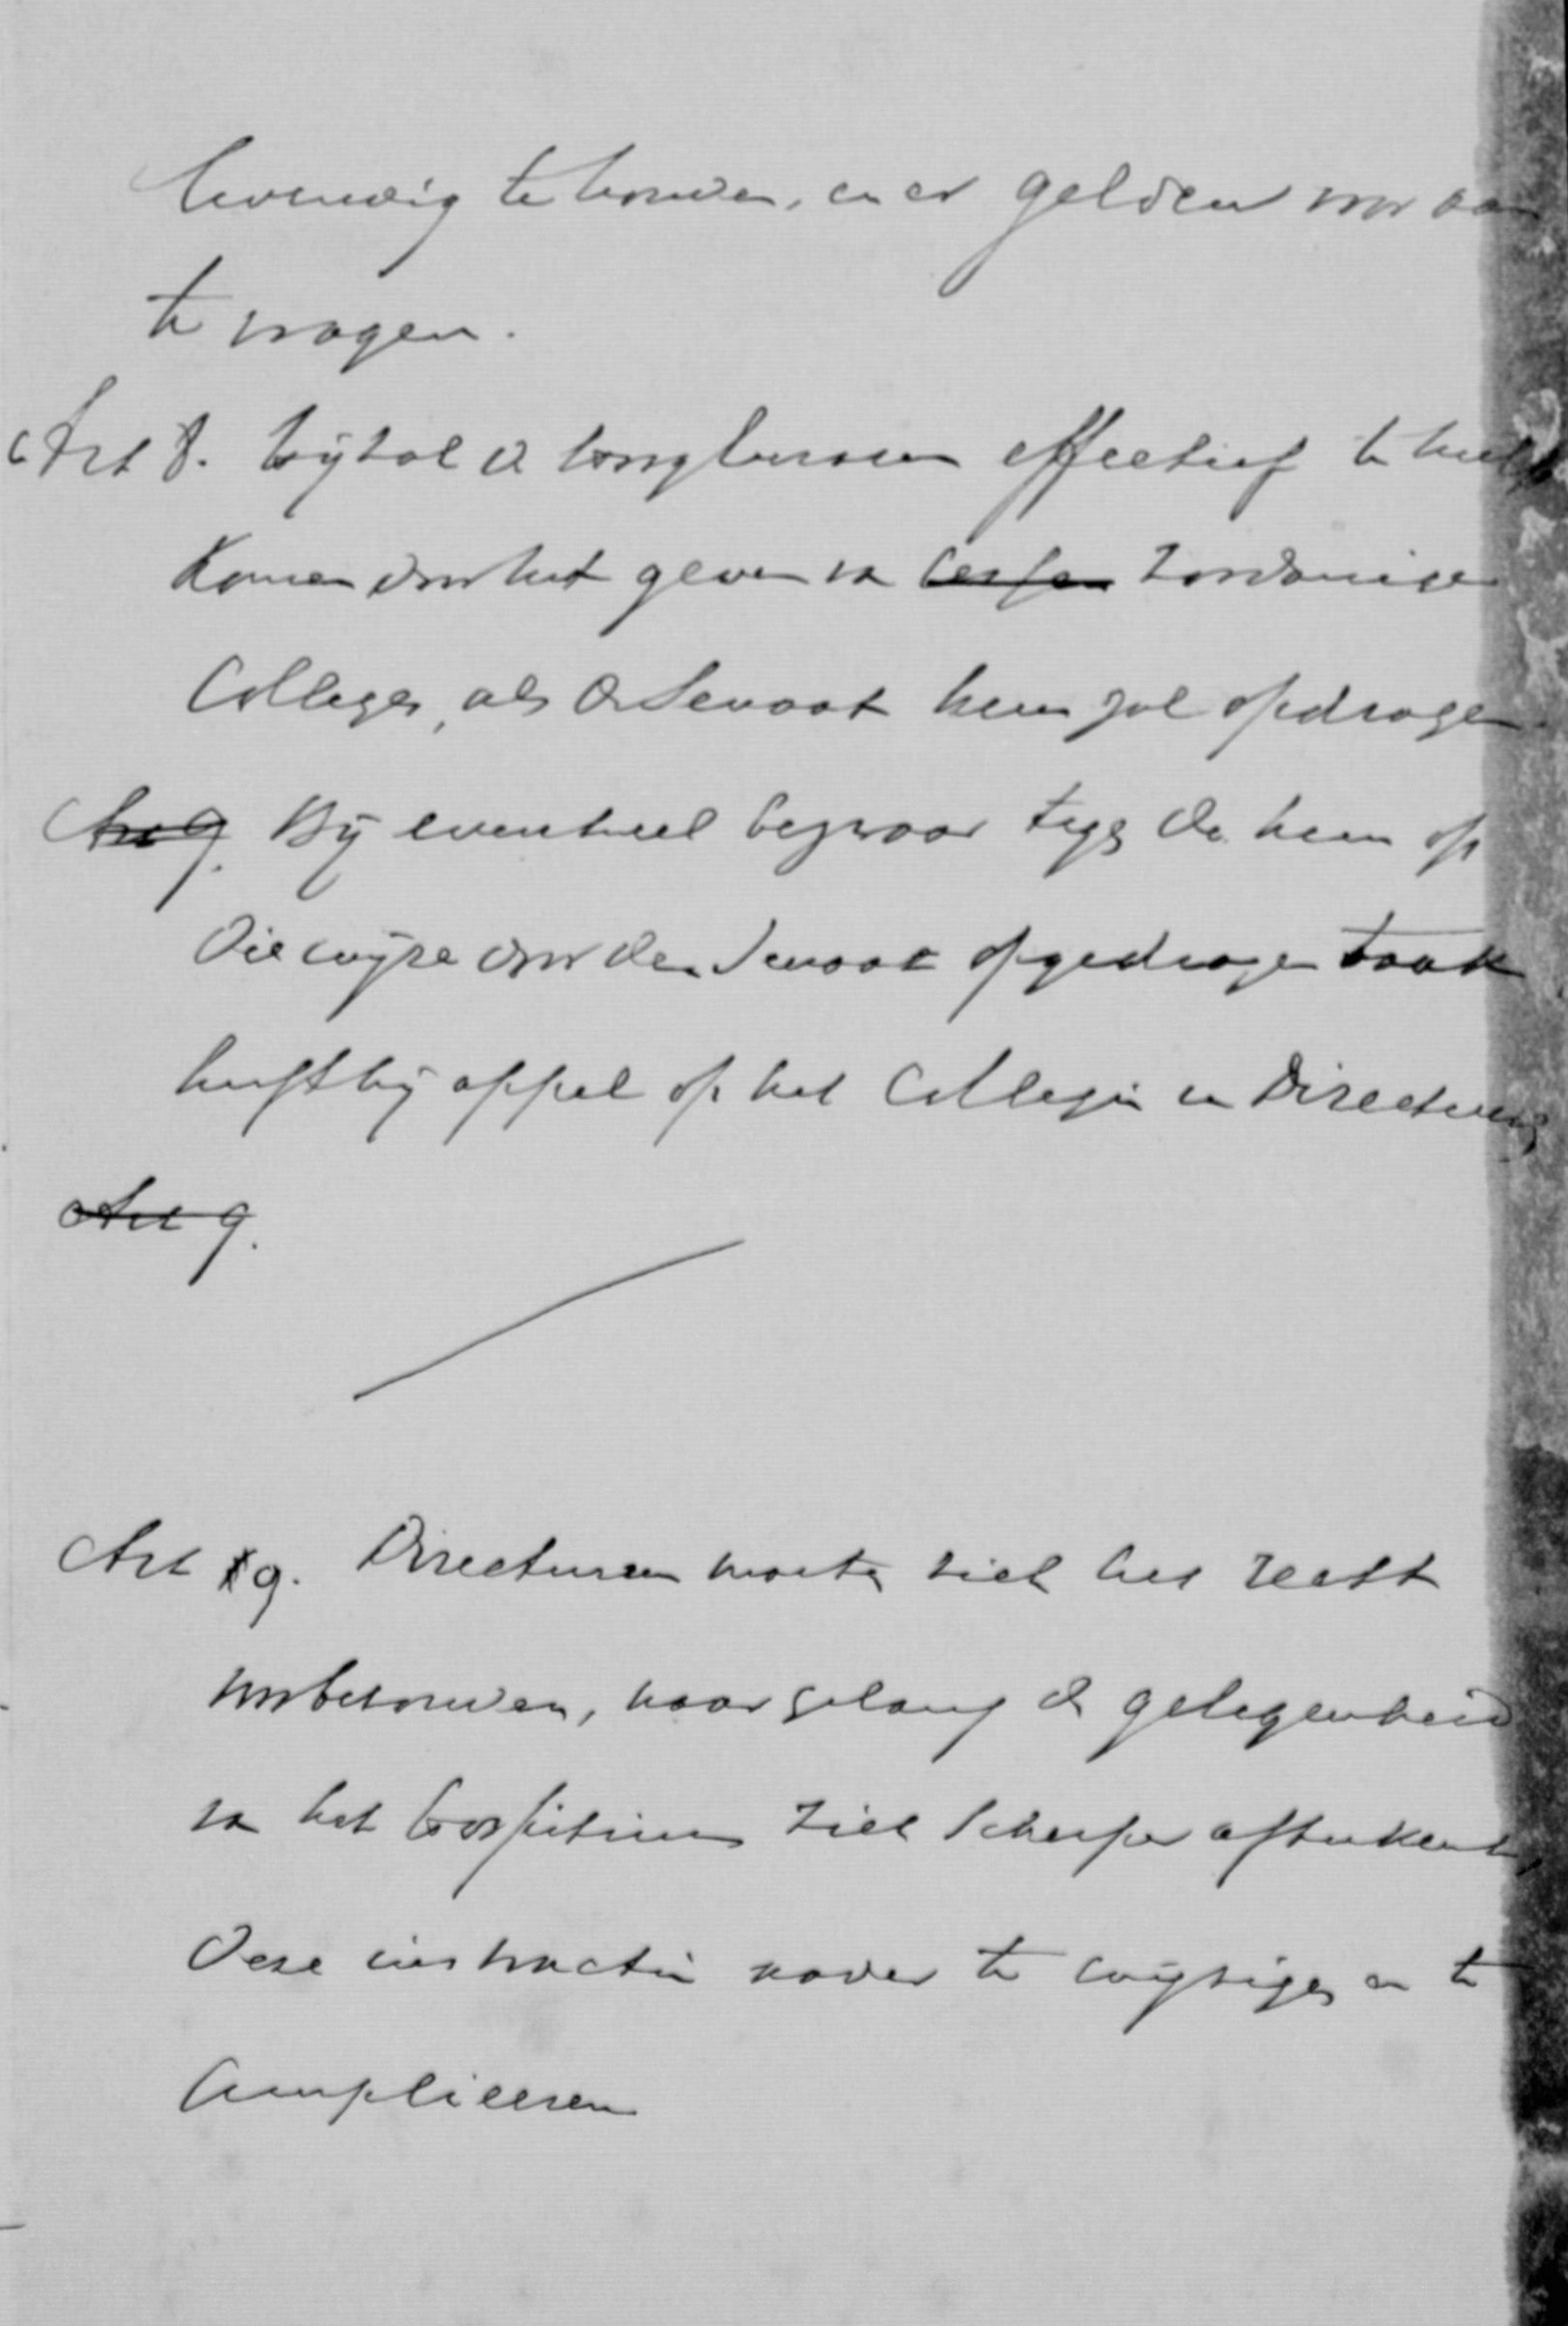 levendig te houden, en er gelden voor aan
te vragen.
Art 8. Hij zal de hoogleeraren effectief te hulp
komen door het geven van lessen zoodanige
Colleges, als de Senaat hem zal opdragen.
Art 9. Bij eventueel bezwaar tegen de hem op
die wijze door den Senaat opgedragen taak
heeft hij appel op het Collegie van Directeuren
Art 9.
Art 9. Directeuren moeten zich het recht
voorbehouden, naar gelang de gelegenheid
van het hospitium zich scherper afteekent,
deze instructie nader te wijzigen en te
amplieeren